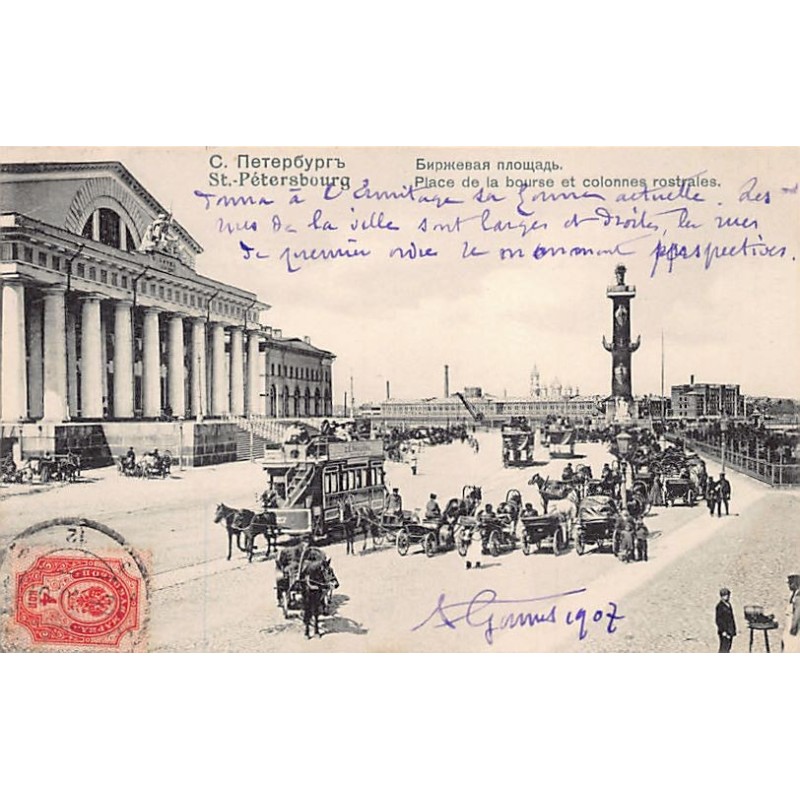 С. Петербургъ
St.-Pétersbourg
Биржевая площадь.
Place de la bourse et colonnes rostrales.
donna à l'Ermitage sa forme actuelle. Les
rues de la ville sont larges et droites, les rues
de premier ordre se nomment perspectives.
1907
12
4